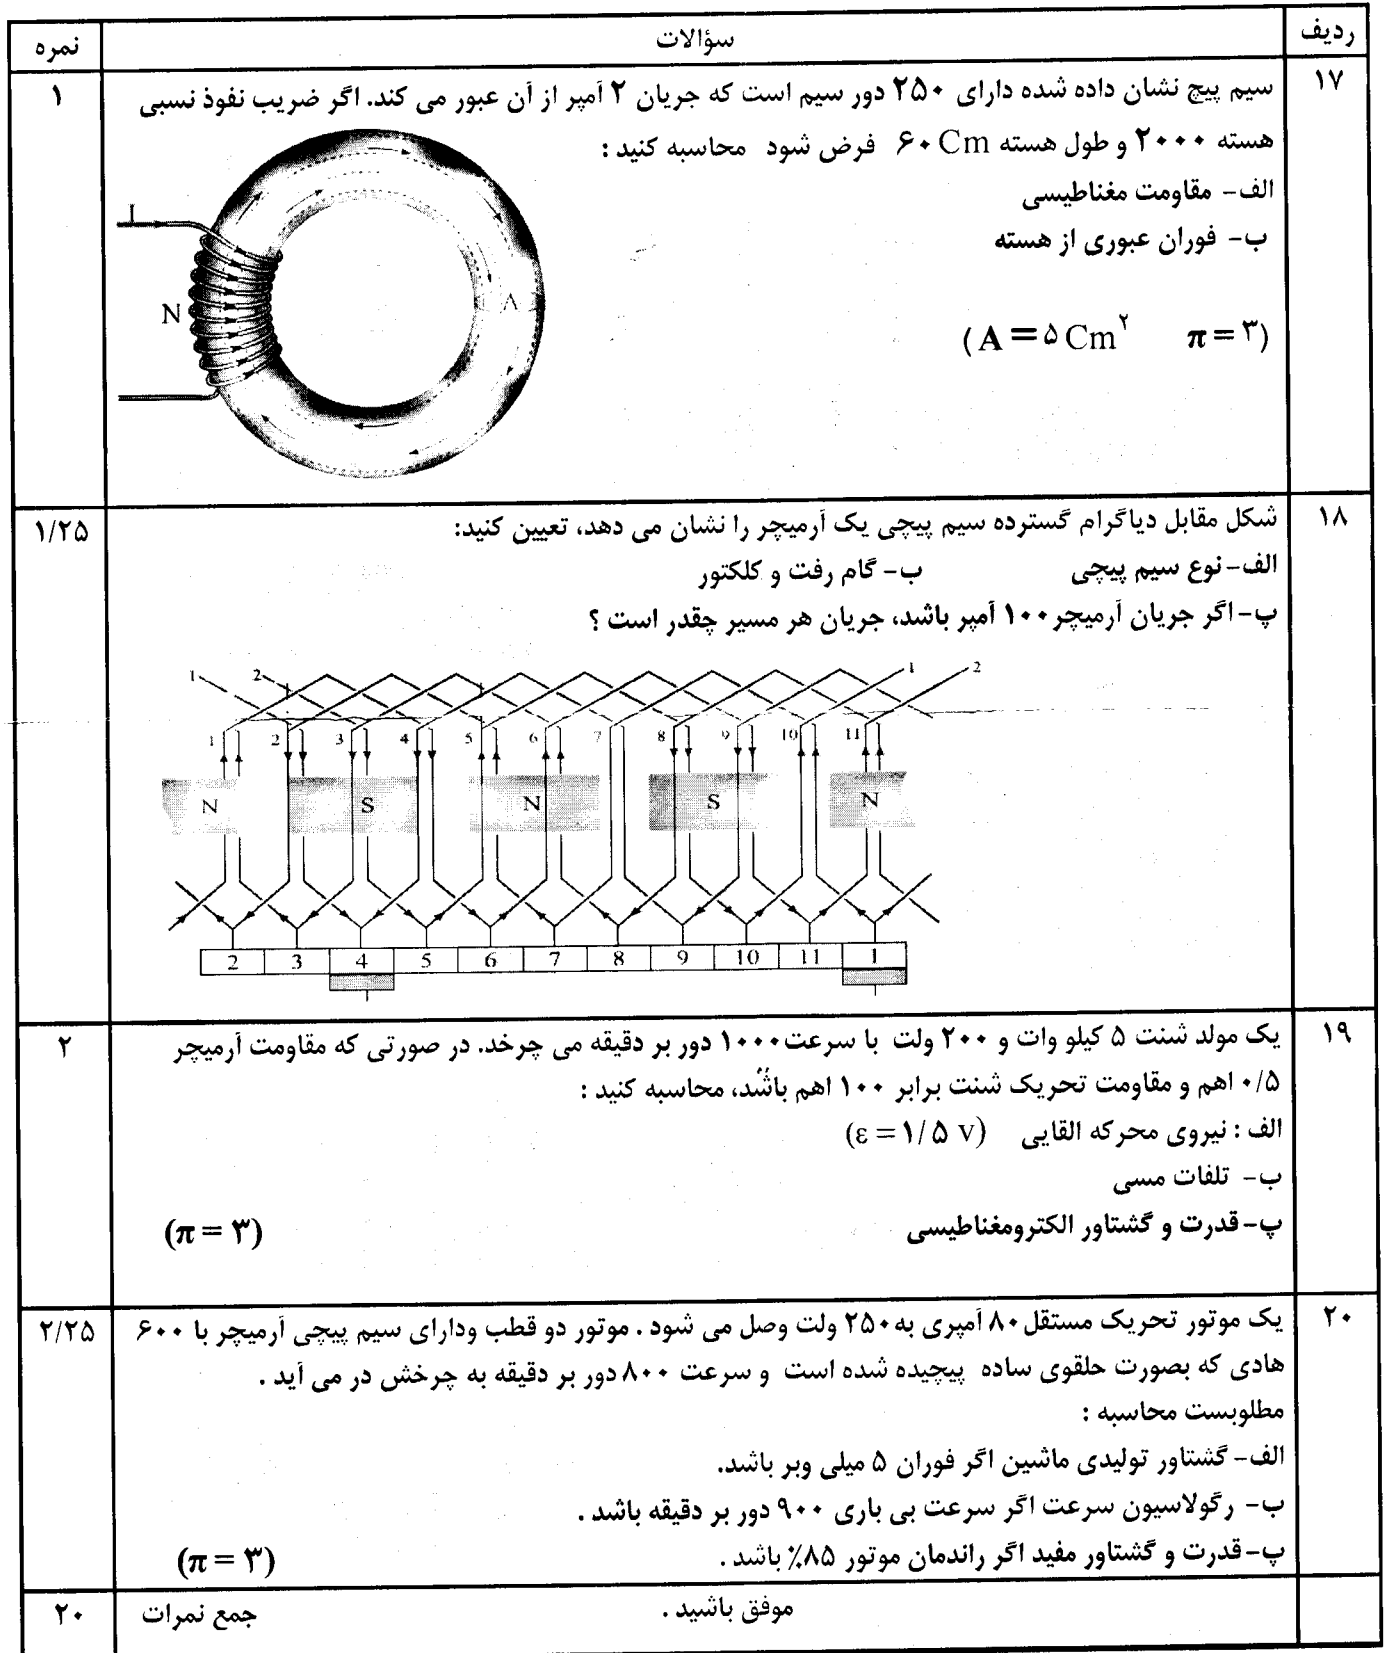 ردیف سؤالات نمره
۱۷ سیم پیچ نشان داده شده دارای ۲۵۰ دور سیم است که جریان ۲ آمپر از آن عبور می کند. اگر ضریب نفوذ نسبی ۱
هسته ۲۰۰۰ و طول هسته ۶۰ Cm فرض شود محاسبه کنید :
الف- مقاومت مغناطیسی
ب- فوران عبوری از هسته
(A = ۵ Cm^۲ π = ۳)
I
N
A
۱۸ شکل مقابل دیاگرام گسترده سیم پیچی یک آرمیچر را نشان می دهد، تعیین کنید: ۱/۲۵
الف- نوع سیم پیچی ب- گام رفت و کلکتور
پ- اگر جریان آرمیچر ۱۰۰ آمپر باشد، جریان هر مسیر چقدر است ؟
1 2 1 2
1 2 3 4 5 6 7 8 9 10 11
N S N S N
2 3 4 5 6 7 8 9 10 11 1
۱۹ یک مولد شنت ۵ کیلو وات و ۲۰۰ ولت با سرعت ۱۰۰۰ دور بر دقیقه می چرخد. در صورتی که مقاومت آرمیچر ۲
۰/۵ اهم و مقاومت تحریک شنت برابر ۱۰۰ اهم باشد، محاسبه کنید :
الف : نیروی محرکه القایی (ε = ۱/۵ v)
ب- تلفات مسی
پ- قدرت و گشتاور الکترومغناطیسی (π = ۳)
۲۰ یک موتور تحریک مستقل ۸۰ آمپری به ۲۵۰ ولت وصل می شود . موتور دو قطب ودارای سیم پیچی آرمیچر با ۶۰۰ ۲/۲۵
هادی که بصورت حلقوی ساده پیچیده شده است و سرعت ۸۰۰ دور بر دقیقه به چرخش در می آید .
مطلوبست محاسبه :
الف- گشتاور تولیدی ماشین اگر فوران ۵ میلی وبر باشد.
ب- رگولاسیون سرعت اگر سرعت بی باری ۹۰۰ دور بر دقیقه باشد .
پ- قدرت و گشتاور مفید اگر راندمان موتور ۸۵٪ باشد . (π = ۳)
موفق باشید . جمع نمرات ۲۰